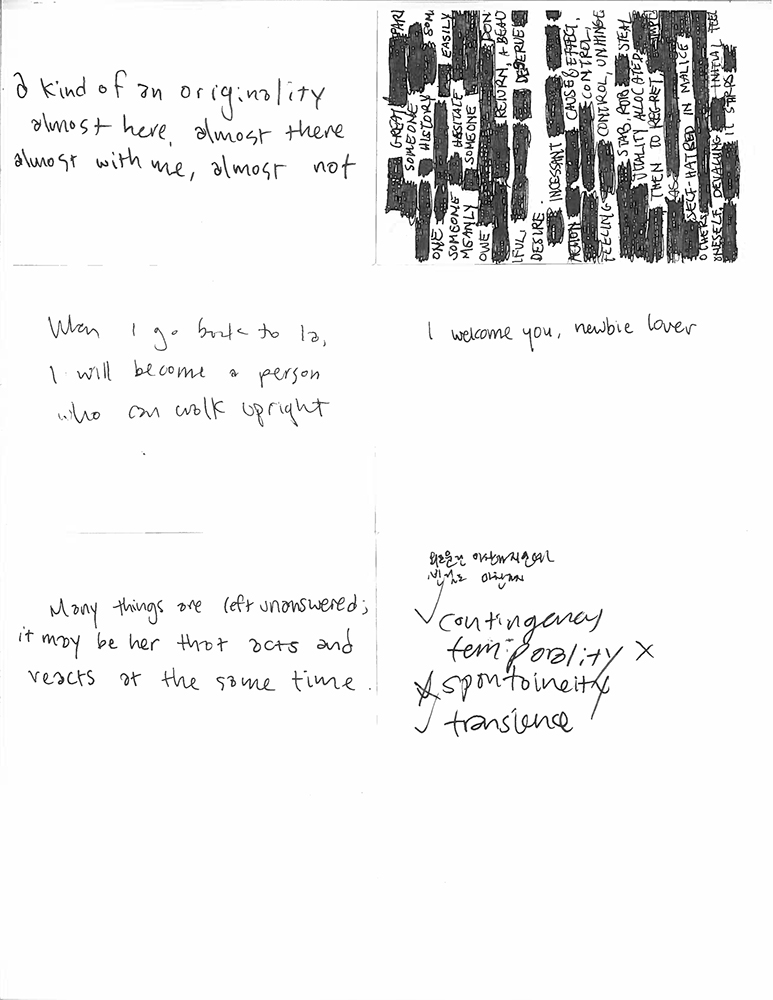 a kind of an originality
almost here, almost there
almost with me, almost not
GREAT PARI
SOMEONE SOM
HISTORY
ONE EASILY
SOMEONE HESITATE
MEANLY SOMEONE
OWE DON
RETURN, A BEAU
IFUL, DESERVE
DESIRE.
INCESSANT
ACTION CAUSE & EFFECT,
CONTROL,
FEELING CONTROL, UNHINGE
STAB, ROB STEAL
VITALITY ALLOCATED,
THEN TO REGRET,
AS
SELF-HATRED IN MALICE
OTHERS
ONESELF, DEVALUING INITIAL FEEL
IT STARTS
When I go back to la,
I will become a person
who can walk upright
I welcome you, newbie lover
Many things are left unanswered;
it may be her that acts and
reacts at the same time.
contingency
temporality X
spontaineity
transience